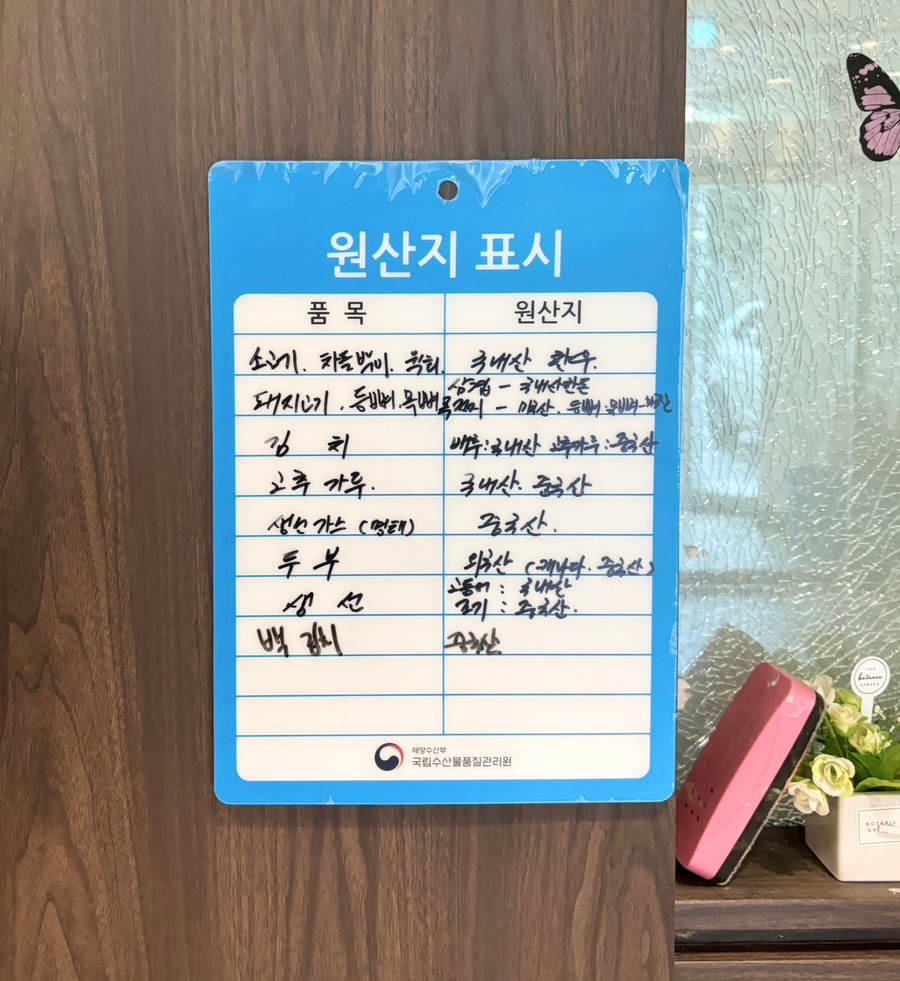 원산지 표시
품 목 원산지
소고기. 차돌박이. 육회. 국내산 한우.
삼겹 - 국내산한돈
돼지고기. 등뼈. 목뼈 목전지 - 미국산. 등뼈. 목뼈 -
김 치 배추:국내산 고추가루:중국산
고추가루. 국내산. 중국산
생선가스 (명태) 중국산.
두 부 외국산 (캐나다. 중국산)
고등어 : 국내산
생 선 조기 : 중국산.
백김치 중국산.
해양수산부
국립수산물품질관리원
THE
botanic
GARDEN
BOTANIC